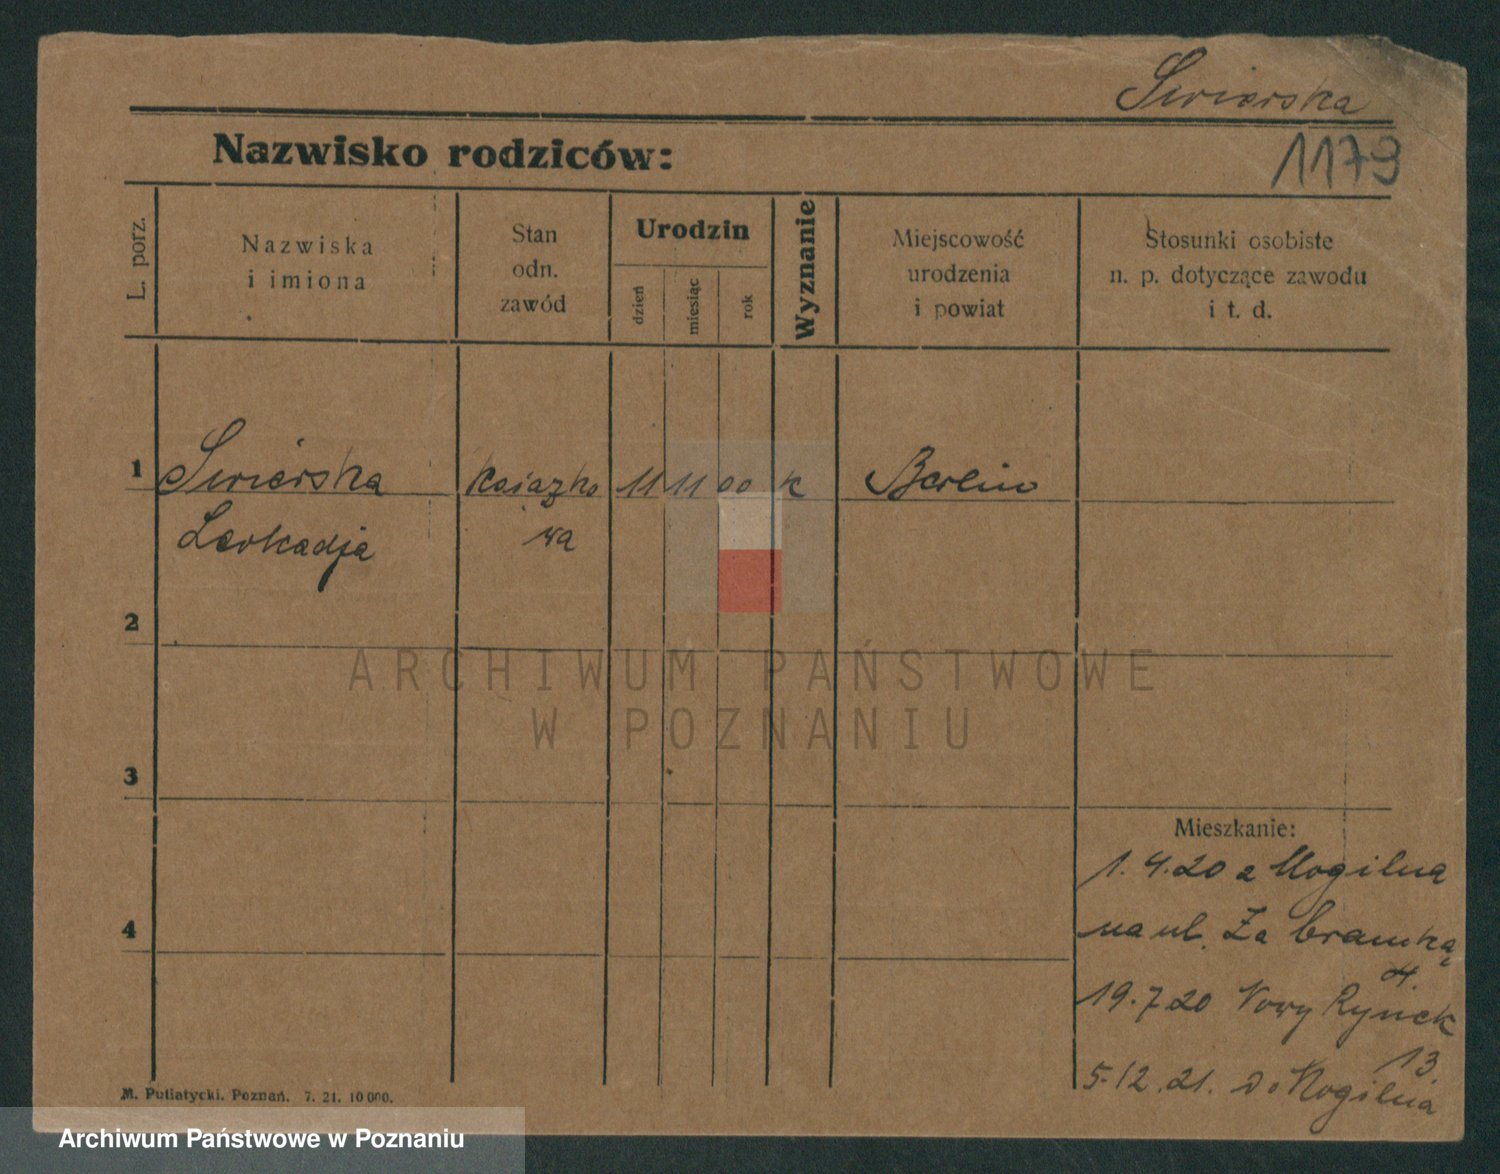 Swierska
1179
Nazwisko rodziców:
L. porz.
Nazwiska
i imiona
Stan
odn.
zawód
Urodzin
dzień
miesiąc
rok
Wyznanie
Miejscowość
urodzenia
i powiat
Stosunki osobiste
n. p. dotyczące zawodu
i t. d.
1 Swierska Książko 11 11 00 K Berlin
Leokadja wa
2
ARCHIWUM PAŃSTWOWE
W POZNANIU
3
Mieszkanie:
1.4.20 z Mogilna
4
na ul. Za bramką
4.
19.7.20 Nowy Rynek
13.
5.12.21. do Mogilna
M. Putiatycki. Poznań. 7. 21. 10 000.
Archiwum Państwowe w Poznaniu